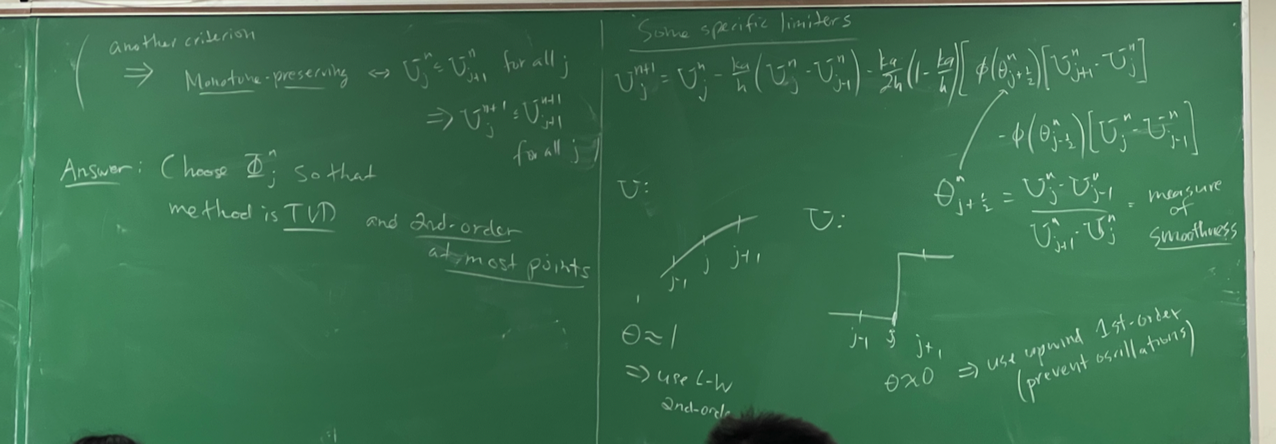 another criterion
⇒ Monotone-preserving ↔ U_j^n ≤ U_{j+1}^n for all j
⇒ U_j^{n+1} ≤ U_{j+1}^{n+1}
for all j
Answer: Choose Φ_j^n so that
method is TVD and 2nd-order
at most points
Some specific limiters
U_j^{n+1} = U_j^n - ka/h (U_j^n - U_{j-1}^n) - ka/2h (1 - ka/h) [ φ(θ_{j+1/2}^n) [U_{j+1}^n - U_j^n]
- φ(θ_{j-1/2}^n) [U_j^n - U_{j-1}^n]
θ_{j+1/2}^n = (U_j^n - U_{j-1}^n) / (U_{j+1}^n - U_j^n) = measure
of
smoothness
U:
j-1 j j+1
θ≈1
⇒ use L-W
2nd-orde
U:
j-1 j j+1
θ≈0 ⇒ use upwind 1st-order
(prevent oscillations)